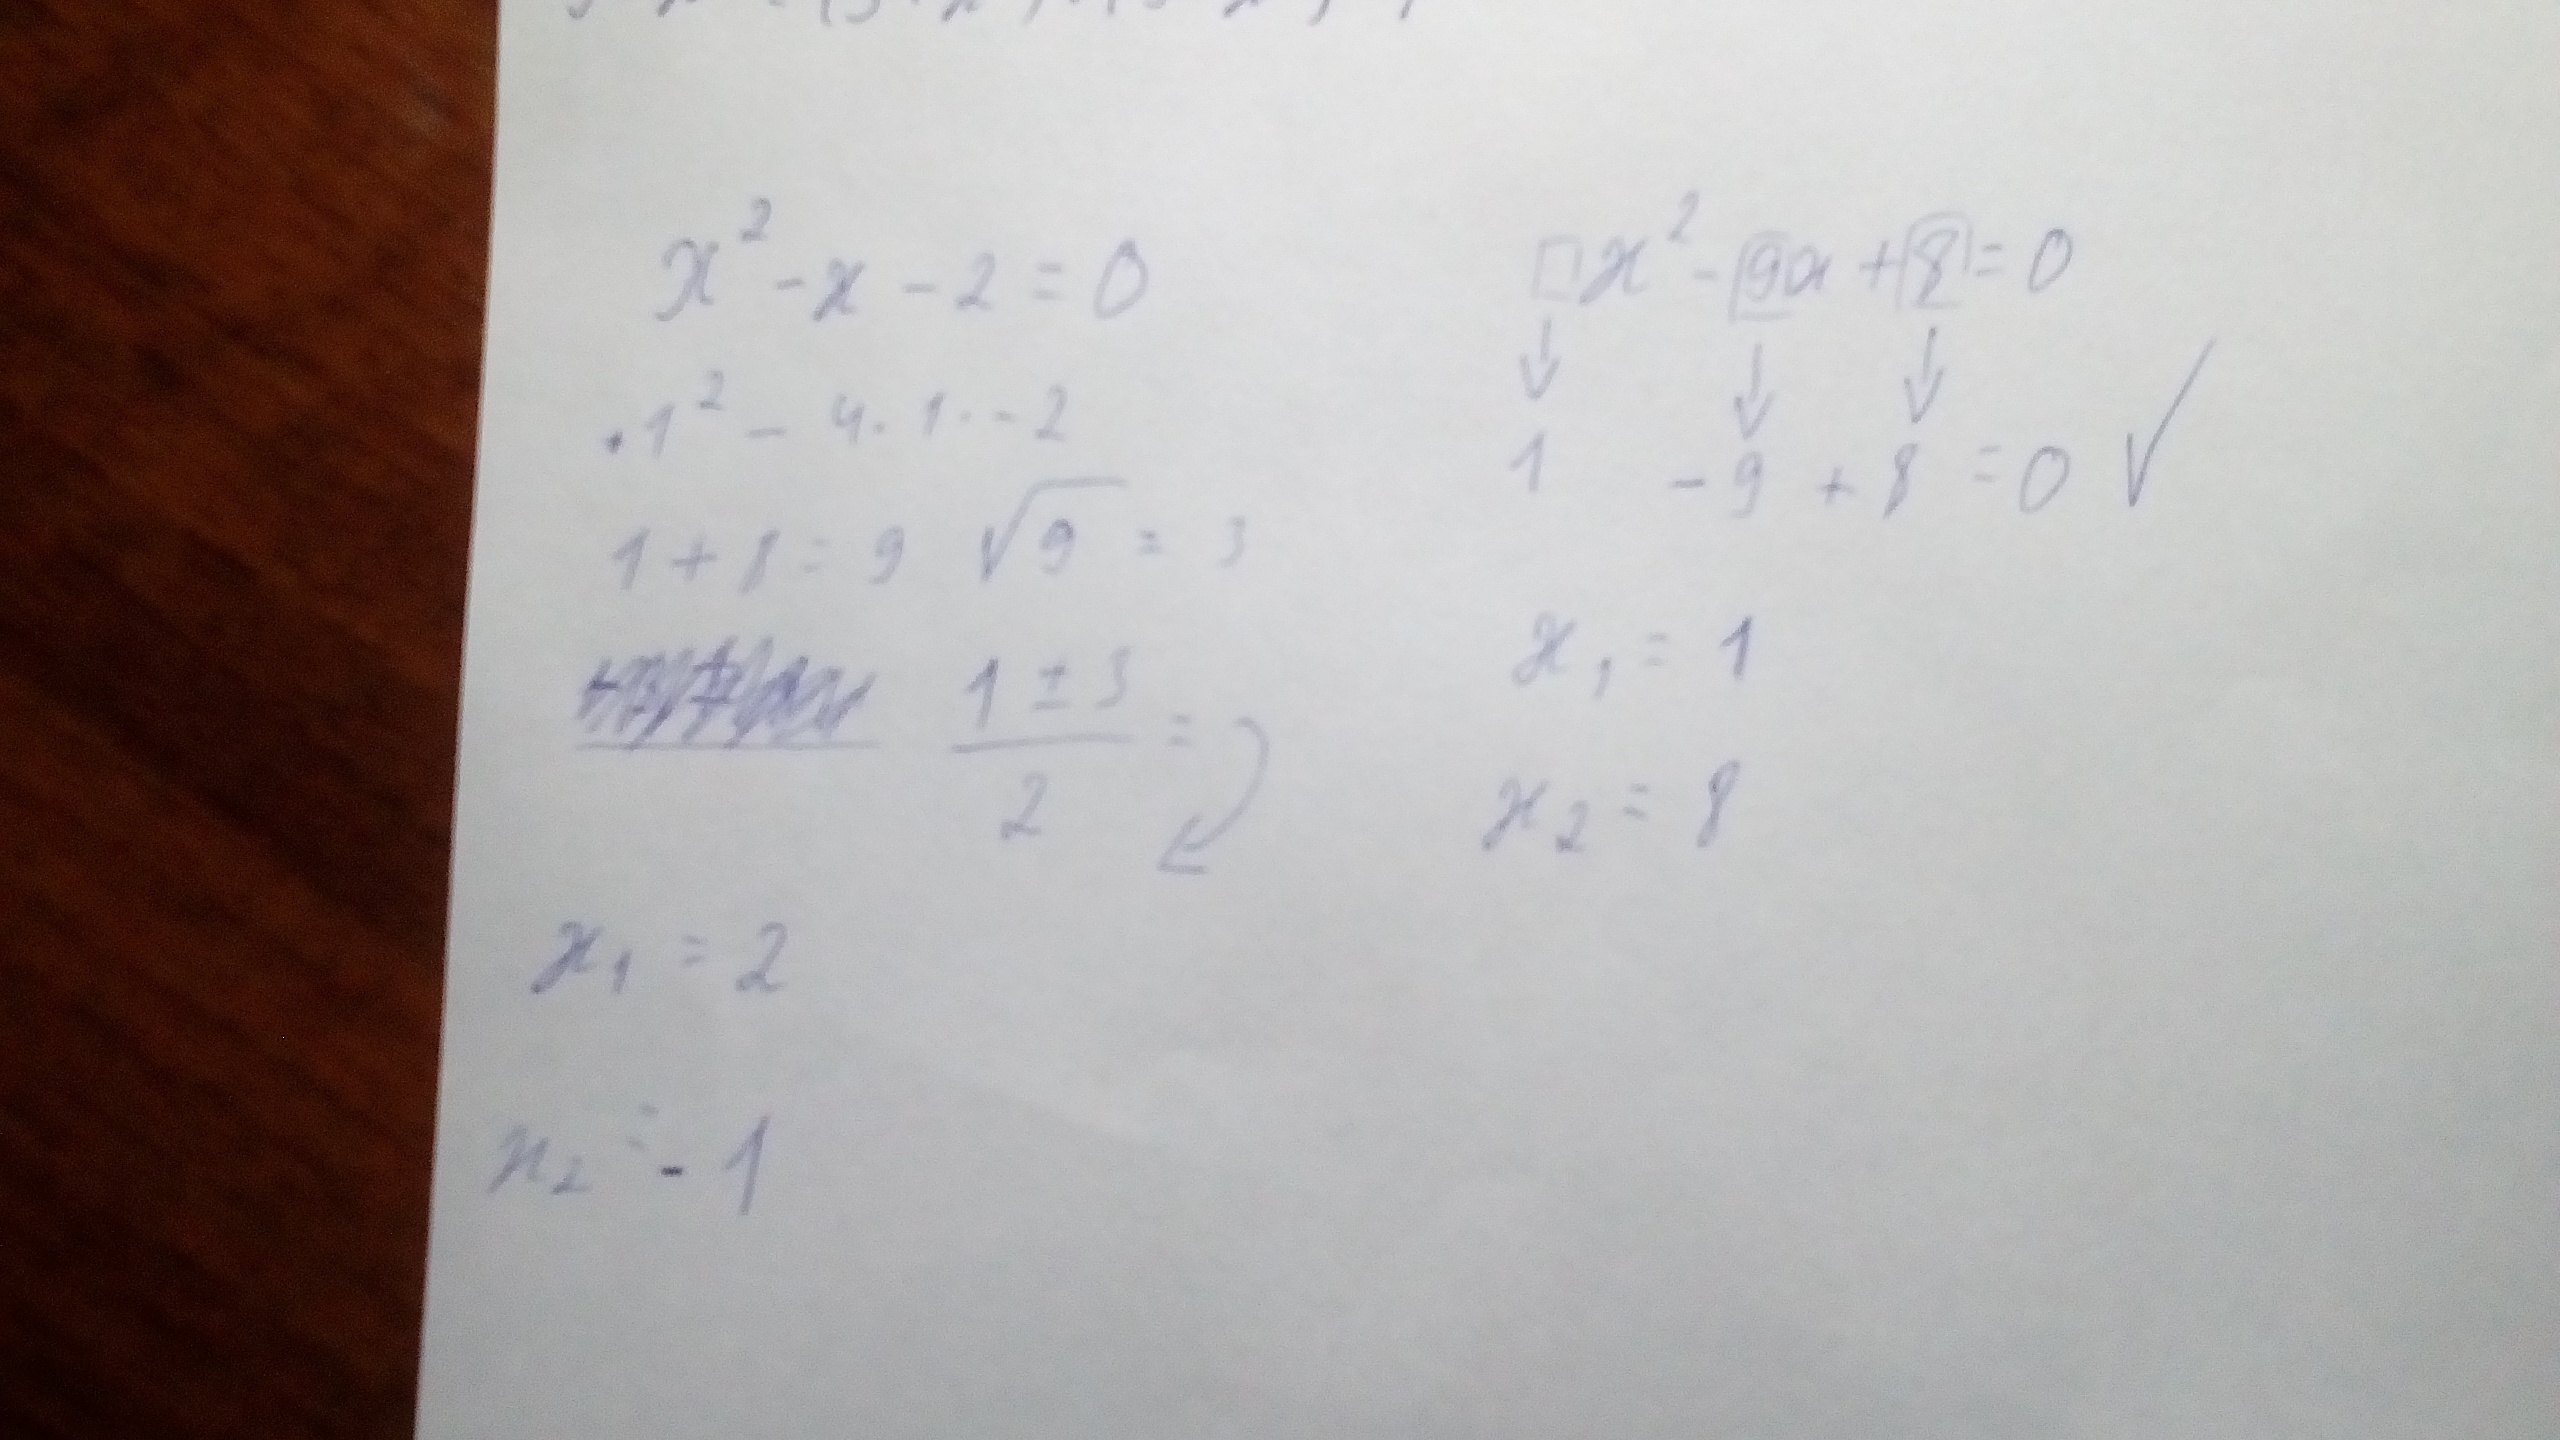 x² - x - 2 = 0
1² - 4 · 1 · -2
1 + 8 = 9 √9 = 3
1 ± 3
2
=
x₁ = 2
x₂ = - 1
x² - 9x + 8 = 0
1 - 9 + 8 = 0 ✓
x₁ = 1
x₂ = 8